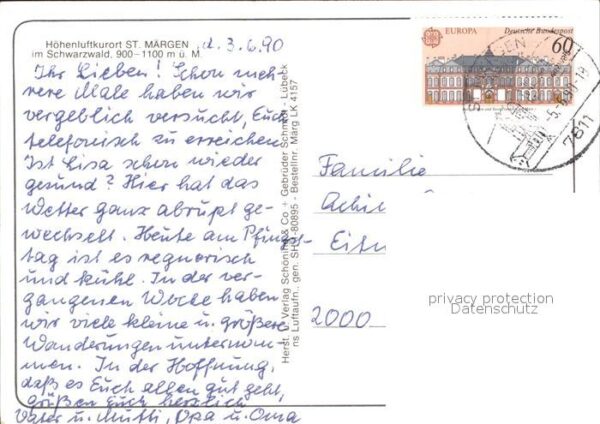 Höhenluftkurort ST. MÄRGEN
im Schwarzwald, 900–1100 m ü. M.
d. 3.6.90
Ihr Lieben! Schon meh-
rere Male haben wir
vergeblich versucht, Euch
telefonisch zu erreichen.
Ist Lisa schon wieder
gesund? Hier hat das
Wetter ganz abrupt ge-
wechselt. Heute am Pfings-
tag ist es regnerisch
und kühl. In der ver-
gangenen Woche haben
wir viele kleine u. größere
Wanderungen unternom-
men. In der Hoffnung,
daß es Euch allen gut geht,
grüßen Euch herzlich
Vater u. Mutti, Opa u. Oma
Herst. u. Verlag Schöning & Co + Gebrüder Schmidt - Lübeck
ns Luftaufn., gen. SH 80895 - Bestellnr. Märg LK 4157
EUROPA Deutsche Bundespost
60
7811
Familie
2000
privacy protection
Datenschutz